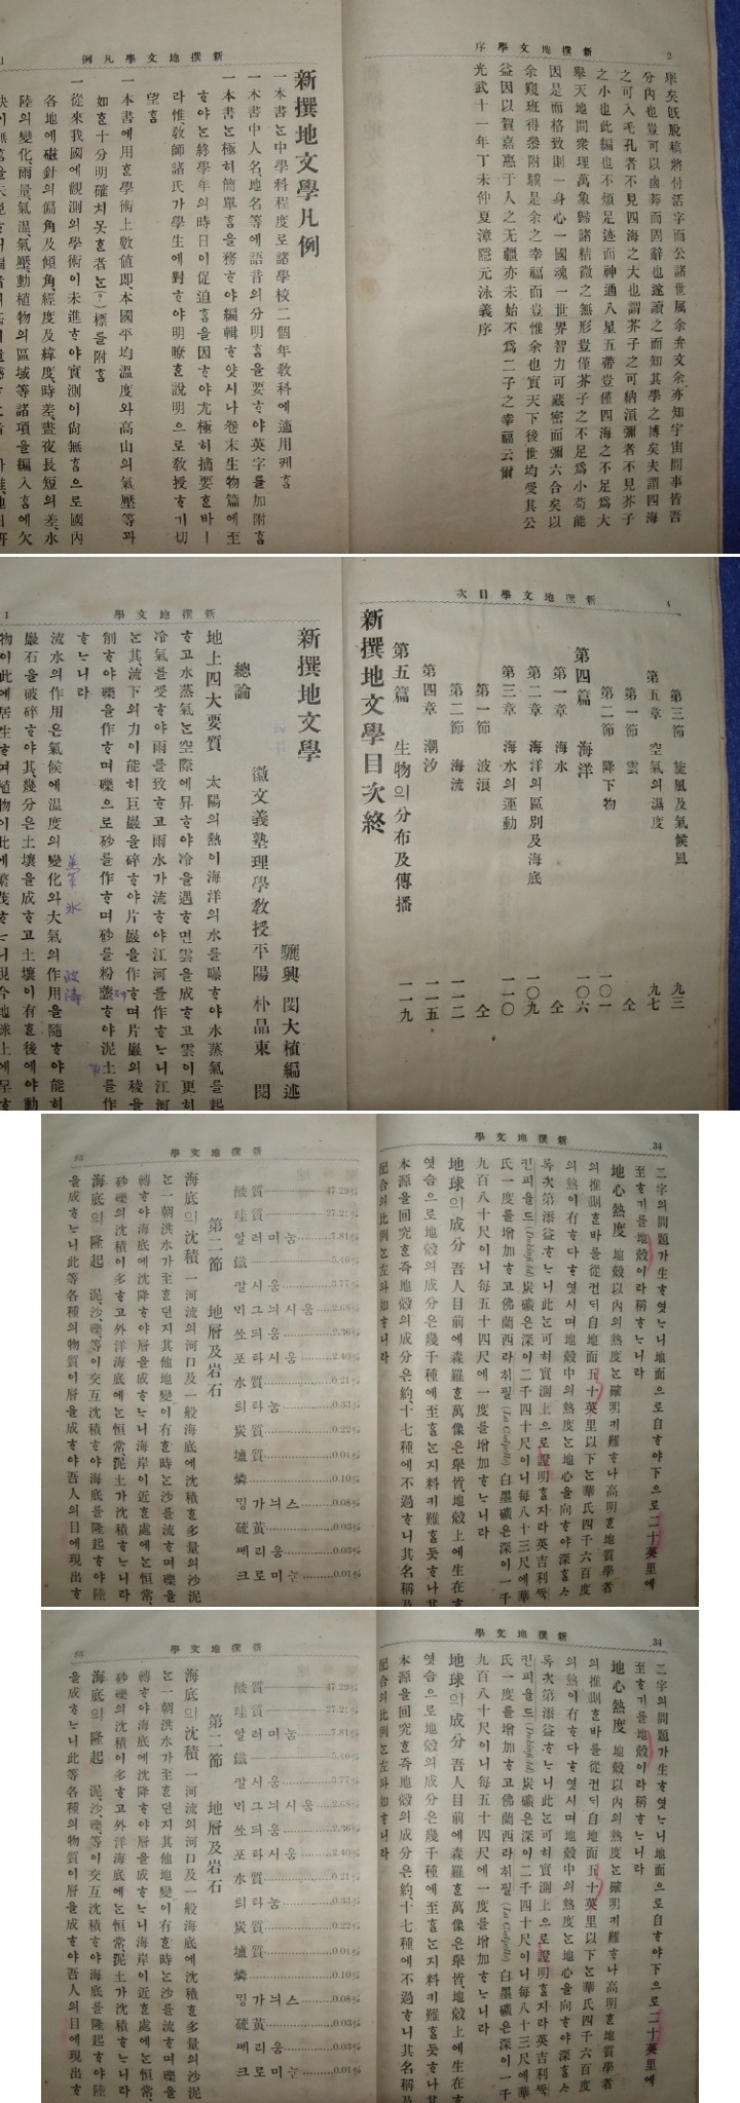 2
新撰地文學 序
分內也豈可以鹵莽而固辭也遂讀之而知其學之博矣夫謂四海
之可入毛孔者不見四海之大也謂芥子之可納須彌者不見芥子
之小也此編也不煩足迹而神通八星五帶豈僅四海之不足爲大
擧天地間衆理萬象歸諸精微之無形豈僅芥子之不足爲小苟能
因是而格致則一身心一國魂一世界智力可藏密而彌六合矣以
光武十一年丁未仲夏漳隱元泳義序
新撰地文學 凡例
1
新撰地文學凡例
一本書ᄂᆞᆫ中學科程度로諸學校二個年敎科에適用케ᄒᆞᆷ
一本書中人名、地名等에語音의分明ᄒᆞᆷ을要ᄒᆞ야英字를加附ᄒᆞᆷ
一本書ᄂᆞᆫ極히簡單ᄒᆞᆷ을務ᄒᆞ야編輯ᄒᆞ얏시나卷末生物篇에至
ᄒᆞ야ᄂᆞᆫ終學年의時日이促迫ᄒᆞᆷ을因ᄒᆞ야尤極히摘要ᄒᆞᆫ바ㅣ
라惟敎師諸氏가學生에對ᄒᆞ야明瞭ᄒᆞᆫ說明으로敎授ᄒᆞ기切
望ᄒᆞᆷ
一本書에用ᄒᆞᆫ學術上數値卽、本國平均溫度와高山의氣壓等과
如ᄒᆞᆫ十分明確치못ᄒᆞᆫ者ᄂᆞᆫ(?)標를附ᄒᆞᆷ
一從來我國에觀測의學術이未進ᄒᆞ야實測이尙無ᄒᆞᆷ으로國內
各地에磁針의偏角及傾角、經度及緯度、時差、晝夜長短의差、水
陸의變化、雨量、氣溫、氣壓、動植物의區域等諸項을編入ᄒᆞᆷ에欠
4
新撰地文學 目次
第三節 旋風及氣候風 九三
第五章 空氣의濕度 九七
第一節 雲 仝
第二節 降下物 一〇一
第四篇 海洋 一〇六
第一章 海水 仝
第二章 海洋의區別及海底 一〇九
第三章 海水의運動 一一〇
第一節 波浪 仝
第二節 海流 一一二
第四章 潮汐 一一五
第五篇 生物의分布及傳播 一一九
新撰地文學目次終
新撰地文學
1
新撰地文學
驪興 閔大植編述
徽文義塾理學敎授平陽 朴晶東 閱
總論
地上四大要質 太陽의熱이海洋의水를曝ᄒᆞ야水蒸氣를起
ᄒᆞ고水蒸氣ᄂᆞᆫ空際에昇ᄒᆞ야冷을遇ᄒᆞ면雲을成ᄒᆞ고雲이更히
冷氣를受ᄒᆞ야雨를致ᄒᆞ고雨水가流ᄒᆞ야江河를作ᄒᆞᄂᆞ니江河
ᄂᆞᆫ其流下의力이能히巨巖을碎ᄒᆞ야片巖을作ᄒᆞ며片巖의稜을
削ᄒᆞ야礫을作ᄒᆞ며礫으로砂를作ᄒᆞ며砂를粉虀ᄒᆞ야泥土를作
ᄒᆞᄂᆞ니라
流水의作用은氣候에溫度의變化와大氣의作用을隨ᄒᆞ야能히
巖石을破碎ᄒᆞ야其幾分은土壤을成ᄒᆞ고土壤이有ᄒᆞᆫ後에야動
物이此에居生ᄒᆞ며植物이此에繁茂ᄒᆞᄂᆞ니現今地球上에呈ᄒᆞ
34
新撰地文學
二字의問題가生ᄒᆞ엿ᄂᆞ니地面으로自ᄒᆞ야下으로二十英里에
至ᄒᆞ기를地殼이라稱ᄒᆞᄂᆞ니라
地心熱度 地殼以內의熱度ᄂᆞᆫ確明키難ᄒᆞ나高明ᄒᆞᆫ地質學者
의推測ᄒᆞᆫ바를從컨ᄃᆡ自地面五十英里以下ᄂᆞᆫ華氏四千六百度
의熱이有ᄒᆞ다ᄒᆞ엿시며地殼中의熱度ᄂᆞᆫ地心을向ᄒᆞ야深ᄒᆞᆯᄉᆞ
氏一度를增加ᄒᆞ고佛蘭西라취필 白墨礦은深이一千
九百八十尺이니每五十四尺에一度를增加ᄒᆞᄂᆞ니라
地球의成分 吾人目前에森羅ᄒᆞᆫ萬像은擧皆、地殼上에生在ᄒᆞ
엿슴으로地殼의成分은幾千種에至ᄒᆞᆯᄂᆞᆫ지料키難ᄒᆞᆯ듯ᄒᆞ나其
本源을回究ᄒᆞᆫ즉地殼의成分은約、十七種에不過ᄒᆞ니其名稱及
配合의比例ᄂᆞᆫ左와如ᄒᆞ니라
新撰地文學
酸質 47.29%
珪質 27.21%
알러미늄 7.81%
鐵 5.46%
칼시움 3.77%
머그늬시움 2.68%
쏘듸움 2.36%
포타시움 2.40%
水質 0.21%
틔타늄 0.33%
炭質 0.22%
塩質 0.01%
燐 0.10%
밍가늬스 0.08%
硫黃 0.03%
쎄리움 0.03%
크로미눈 0.01%
第二節 地層及岩石
海底의沈積 一河流의河口及一般海底에沈積ᄒᆞᆫ多量의沙泥
ᄂᆞᆫ一朝洪水가至ᄒᆞᆫ던지其他地變이有ᄒᆞᆫ時ᄂᆞᆫ沙를流ᄒᆞ며礫을
轉ᄒᆞ야海底에沈降ᄒᆞ야層을成ᄒᆞᄂᆞ니海岸이近ᄒᆞᆫ處에ᄂᆞᆫ恒常、
砂礫의沈積이多ᄒᆞ고外洋海底에ᄂᆞᆫ恒常、泥土가沈積ᄒᆞᄂᆞ니라
海底의隆起 泥、沙、礫等이交互沈積ᄒᆞ야海底를隆起ᄒᆞ야陸
을成ᄒᆞᄂᆞ니此等各種의物質이層을成ᄒᆞ야吾人의目에現出ᄒᆞ
34
新撰地文學
二字의問題가生ᄒᆞ엿ᄂᆞ니地面으로自ᄒᆞ야下으로二十英里에
至ᄒᆞ기를地殼이라稱ᄒᆞᄂᆞ니라
地心熱度 地殼以內의熱度ᄂᆞᆫ確明키難ᄒᆞ나高明ᄒᆞᆫ地質學者
의推測ᄒᆞᆫ바를從컨ᄃᆡ自地面五十英里以下ᄂᆞᆫ華氏四千六百度
의熱이有ᄒᆞ다ᄒᆞ엿시며地殼中의熱度ᄂᆞᆫ地心을向ᄒᆞ야深ᄒᆞᆯᄉᆞ
氏一度를增加ᄒᆞ고佛蘭西라취필 白墨礦은深이一千
九百八十尺이니每五十四尺에一度를增加ᄒᆞᄂᆞ니라
地球의成分 吾人目前에森羅ᄒᆞᆫ萬像은擧皆、地殼上에生在ᄒᆞ
엿슴으로地殼의成分은幾千種에至ᄒᆞᆯᄂᆞᆫ지料키難ᄒᆞᆯ듯ᄒᆞ나其
本源을回究ᄒᆞᆫ즉地殼의成分은約、十七種에不過ᄒᆞ니其名稱及
配合의比例ᄂᆞᆫ左와如ᄒᆞ니라
新撰地文學
酸質 47.29%
珪質 27.21%
알러미늄 7.81%
鐵 5.46%
칼시움 3.77%
머그늬시움 2.68%
쏘듸움 2.36%
포타시움 2.40%
水質 0.21%
틔타늄 0.33%
炭質 0.22%
塩質 0.01%
燐 0.10%
밍가늬스 0.08%
硫黃 0.03%
쎄리움 0.03%
크로미눈 0.01%
第二節 地層及岩石
海底의沈積 一河流의河口及一般海底에沈積ᄒᆞᆫ多量의沙泥
ᄂᆞᆫ一朝洪水가至ᄒᆞᆫ던지其他地變이有ᄒᆞᆫ時ᄂᆞᆫ沙를流ᄒᆞ며礫을
轉ᄒᆞ야海底에沈降ᄒᆞ야層을成ᄒᆞᄂᆞ니海岸이近ᄒᆞᆫ處에ᄂᆞᆫ恒常、
砂礫의沈積이多ᄒᆞ고外洋海底에ᄂᆞᆫ恒常、泥土가沈積ᄒᆞᄂᆞ니라
海底의隆起 泥、沙、礫等이交互沈積ᄒᆞ야海底를隆起ᄒᆞ야陸
을成ᄒᆞᄂᆞ니此等各種의物質이層을成ᄒᆞ야吾人의目에現出ᄒᆞ